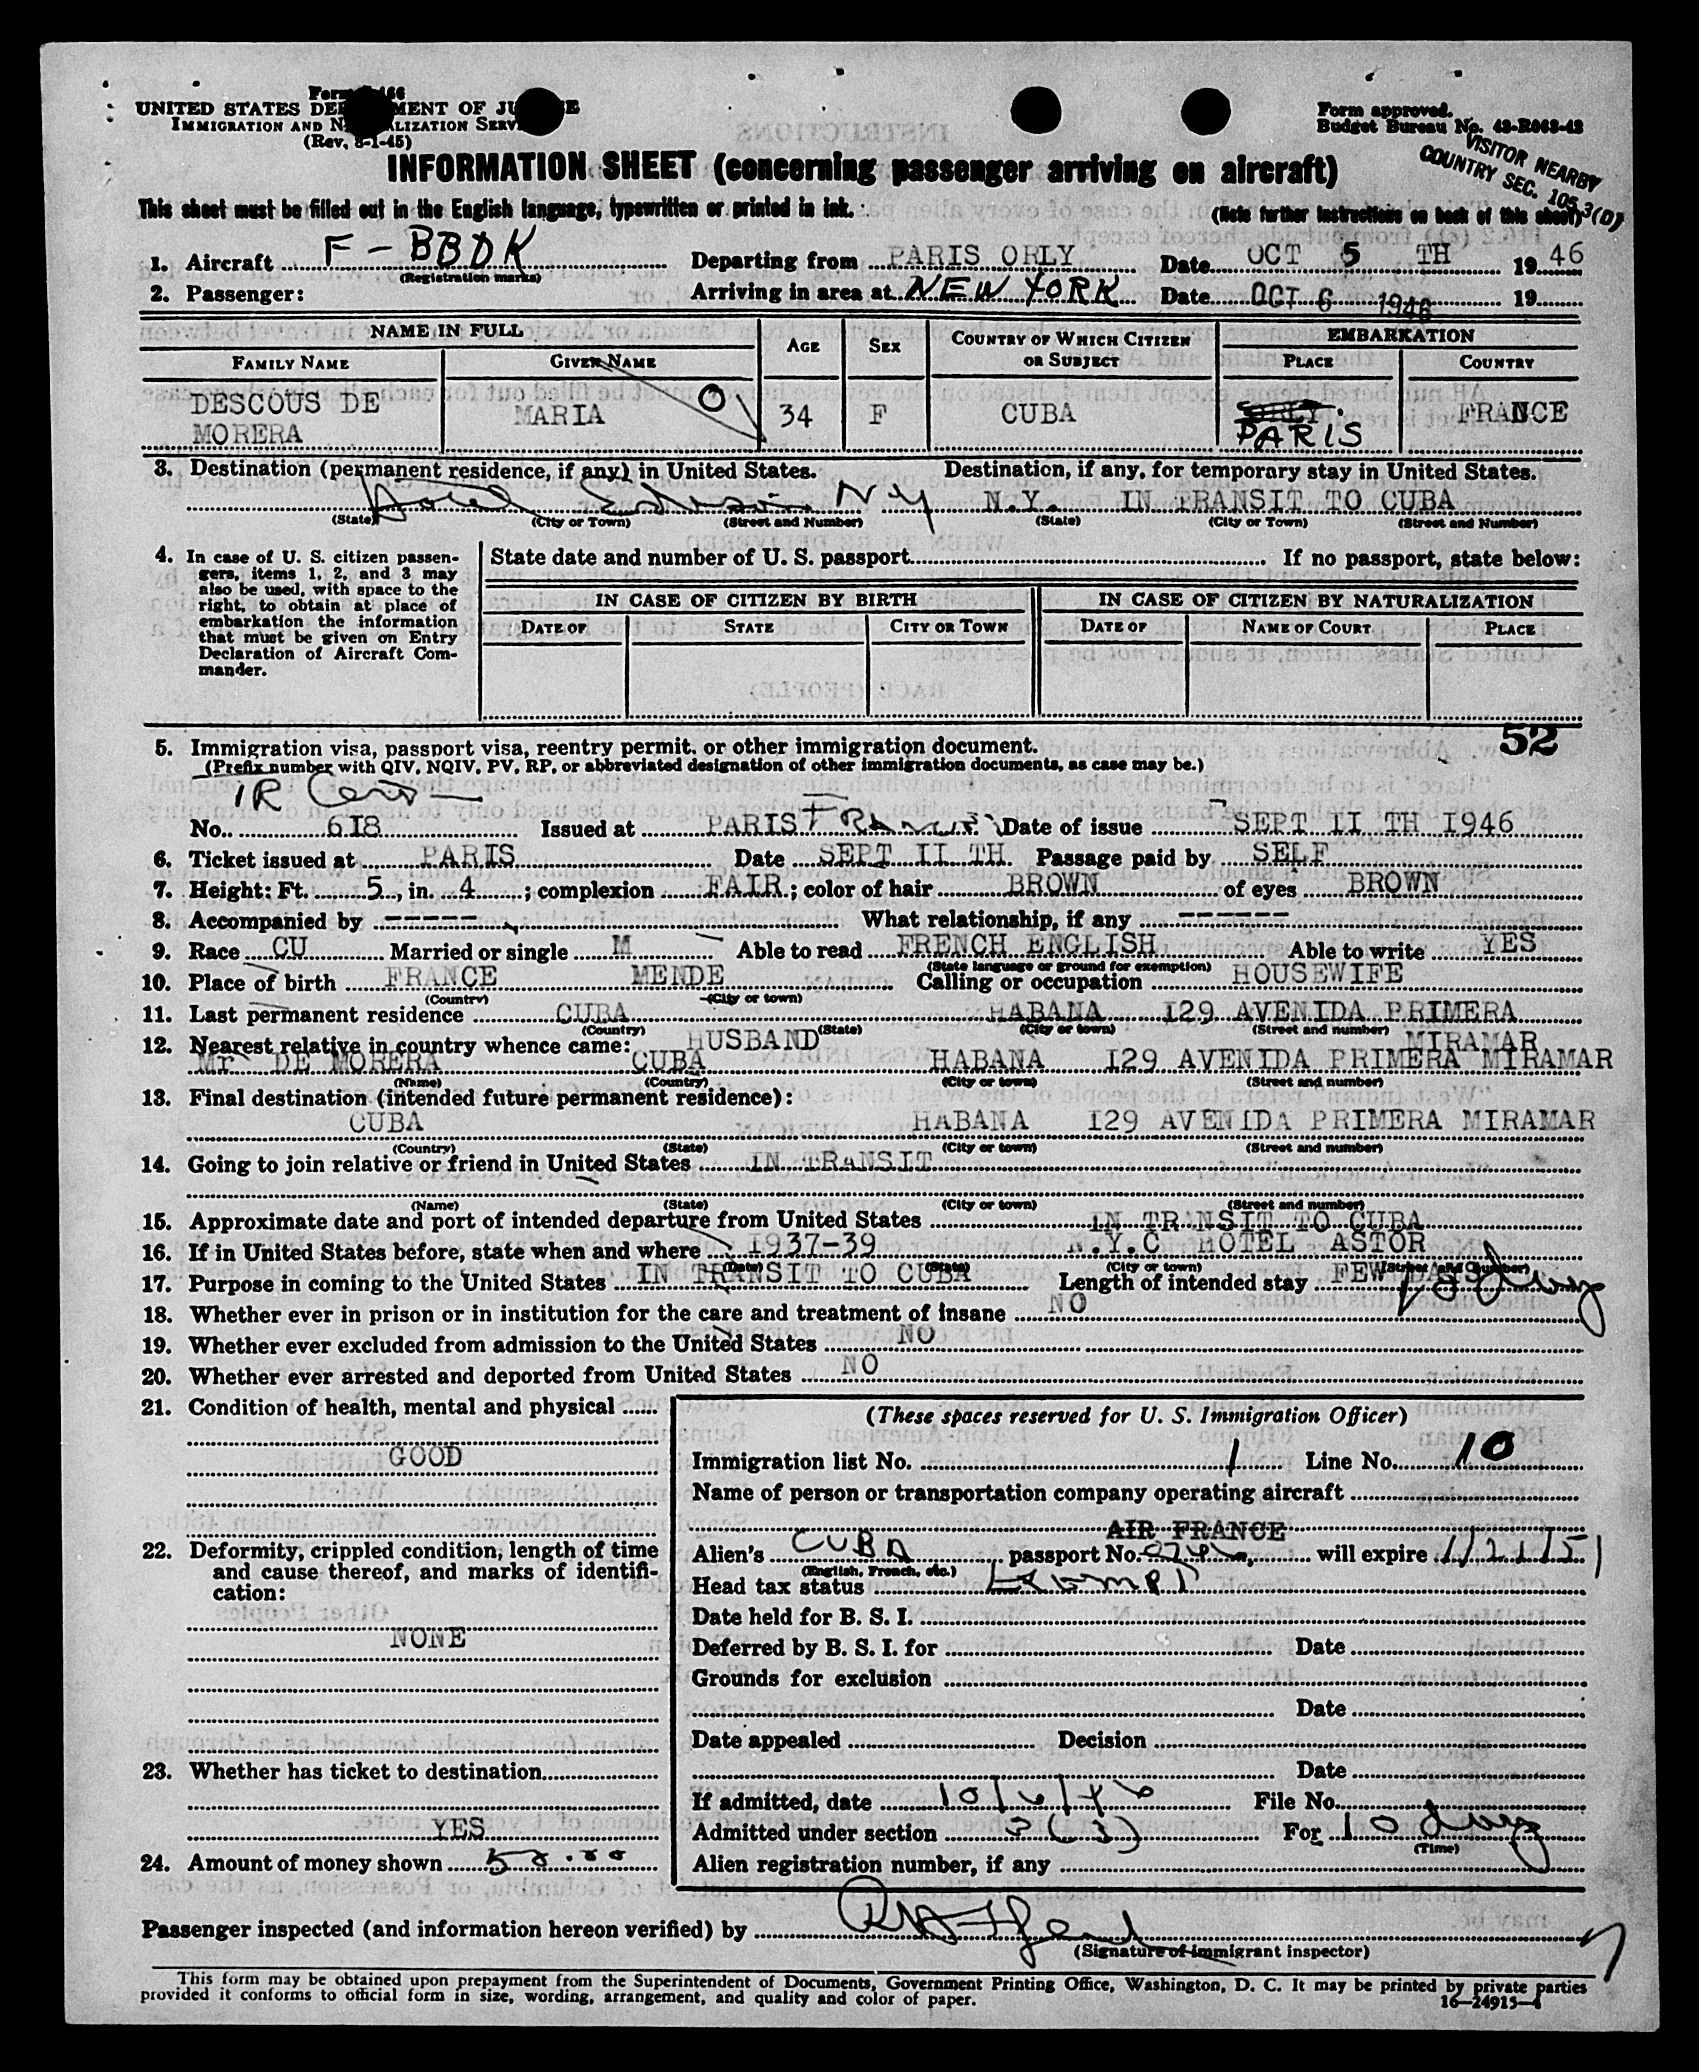 UNITED STATES DE MENT OF JU E
IMMIGRATION AND N ALIZATION SERV
(Rev. 8-1-45)
Form approved.
Budget Bureau No. 43-R063-42
VISITOR NEARBY
COUNTRY SEC. 105.3(D)
INFORMATION SHEET (concerning passenger arriving on aircraft)
This sheet must be filled out in the English language, typewritten or printed in ink.
(Note further instructions on back of this sheet)
1. Aircraft F - BBDK Departing from PARIS ORLY Date OCT 5 TH 1946
(Registration marks)
2. Passenger: Arriving in area at NEW YORK Date OCT 6 1946 19
NAME IN FULL AGE SEX COUNTRY OF WHICH CITIZEN OR SUBJECT EMBARKATION
FAMILY NAME GIVEN NAME PLACE COUNTRY
DESCOUS DE MARIA 34 F CUBA ORLY FRANCE
MORERA PARIS
3. Destination (permanent residence, if any) in United States. Destination, if any, for temporary stay in United States.
Hotel N Y N.Y. IN TRANSIT TO CUBA
(State) (City or Town) (Street and Number) (State) (City or Town) (Street and Number)
4. In case of U. S. citizen passengers, items 1, 2, and 3 may also be used, with space to the right, to obtain at place of embarkation the information that must be given on Entry Declaration of Aircraft Commander.
State date and number of U. S. passport If no passport, state below:
IN CASE OF CITIZEN BY BIRTH IN CASE OF CITIZEN BY NATURALIZATION
DATE OF STATE CITY OR TOWN DATE OF NAME OF COURT PLACE
52
5. Immigration visa, passport visa, reentry permit, or other immigration document.
(Prefix number with QIV, NQIV, PV, RP, or abbreviated designation of other immigration documents, as case may be.)
TR
No. 6I8 Issued at PARIS FRANCE Date of issue SEPT II TH I946
6. Ticket issued at PARIS Date SEPT II TH Passage paid by SELF
7. Height: Ft. 5, in. 4; complexion FAIR; color of hair BROWN of eyes BROWN
8. Accompanied by ----- What relationship, if any ------
9. Race CU Married or single M Able to read FRENCH ENGLISH Able to write YES
(State language or ground for exemption)
10. Place of birth FRANCE MENDE Calling or occupation HOUSEWIFE
(Country) (City or town)
11. Last permanent residence CUBA HABANA I29 AVENIDA PRIMERA
(Country) (State) (City or town) (Street and number)
MIRAMAR
12. Nearest relative in country whence came: HUSBAND
Mr DE MORERA CUBA HABANA I29 AVENIDA PRIMERA MIRAMAR
(Name) (Country) (City or town) (Street and number)
13. Final destination (intended future permanent residence):
CUBA HABANA I29 AVENIDA PRIMERA MIRAMAR
(Country) (State) (City or town) (Street and number)
14. Going to join relative or friend in United States IN TRANSIT
(Name) (State) (City or town) (Street and number)
15. Approximate date and port of intended departure from United States IN TRANSIT TO CUBA
16. If in United States before, state when and where I937-39 N.Y.C HOTEL ASTOR
(Date) (State) (City or town) (Street and number)
17. Purpose in coming to the United States IN TRANSIT TO CUBA Length of intended stay FEW DAYS
18. Whether ever in prison or in institution for the care and treatment of insane NO
19. Whether ever excluded from admission to the United States NO
20. Whether ever arrested and deported from United States NO
21. Condition of health, mental and physical
GOOD
22. Deformity, crippled condition, length of time and cause thereof, and marks of identification:
NONE
23. Whether has ticket to destination
YES
24. Amount of money shown
(These spaces reserved for U. S. Immigration Officer)
Immigration list No. 1 Line No. 10
Name of person or transportation company operating aircraft
AIR FRANCE
Alien's CUBA passport No. will expire 1/21/51
(English, French, etc.)
Head tax status Exempt
Date held for B. S. I.
Deferred by B. S. I. for Date
Grounds for exclusion
Date
Date appealed Decision
Date
If admitted, date 10/6/46 File No.
Admitted under section 3(3) For 10 days
(Time)
Alien registration number, if any
Passenger inspected (and information hereon verified) by
(Signature of immigrant inspector)
This form may be obtained upon prepayment from the Superintendent of Documents, Government Printing Office, Washington, D. C. It may be printed by private parties
provided it conforms to official form in size, wording, arrangement, and quality and color of paper.
16—24915-1